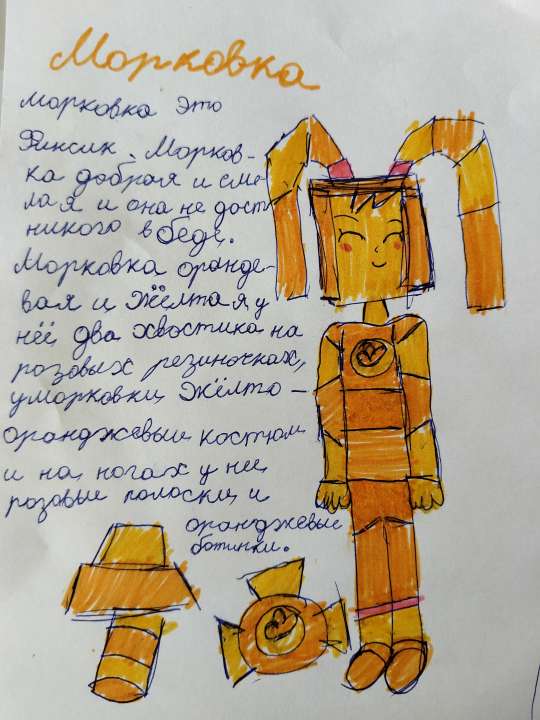 Морковка
морковка это
Фиксик. Морков-
ка добрая и сме-
лая и она не даст
никого в беде.
Морковка орандже-
вая и жёлтая у
неё два хвостика на
розовых резиночках,
у морковки жёлто-
оранджевый костюм
и на ногах у неё
розовые полоски и
оранджевые
ботинки.